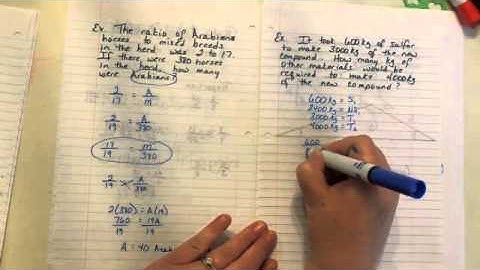 Ex. The ratio of Arabians
horses to mixed breeds
in the herd was 2 to 17.
If there were 380 horses
in the herd, how many
were Arabians?
2/17 = A/m
2/19 = A/380
17/19 = m/380
2/19 × A/380
2(380) = A(19)
760/19 = 19A/19
A = 40
Ex. It took 600kg of sulfar
to make 3000kg of the new
compound. How many kg of
other materials would be
required to make 4000kg
of the new compound?
600kg = S,
2400kg =
3000kg = T,
4000kg =
600